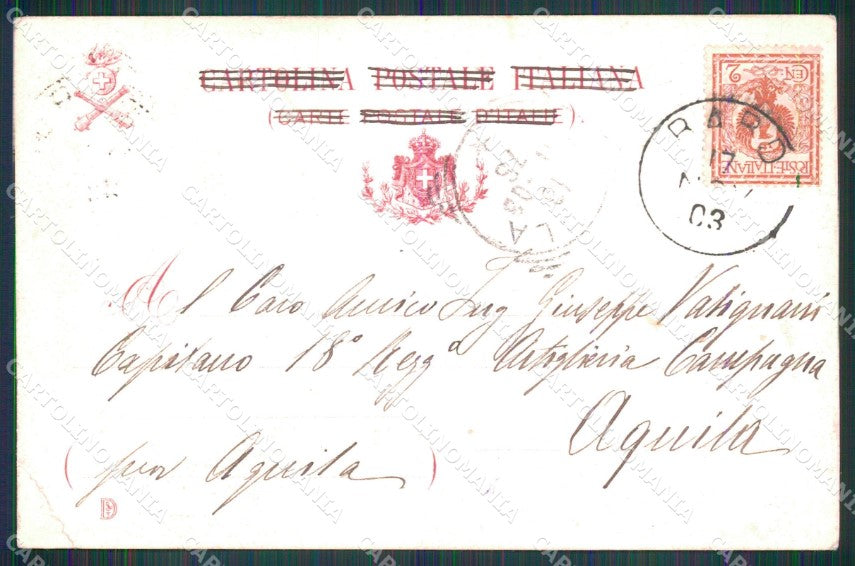 CARTOLINA POSTALE ITALIANA
(CARTE POSTALE D'ITALIE)
2
CEN
POSTE·ITALIANE
BARD
17
03
Al Caro Amico Sig Giuseppe Valignani
Capitano 18° Regg° Artiglieria Campagna
Aquila
per Aquila
D
CARTOLINOMANIA